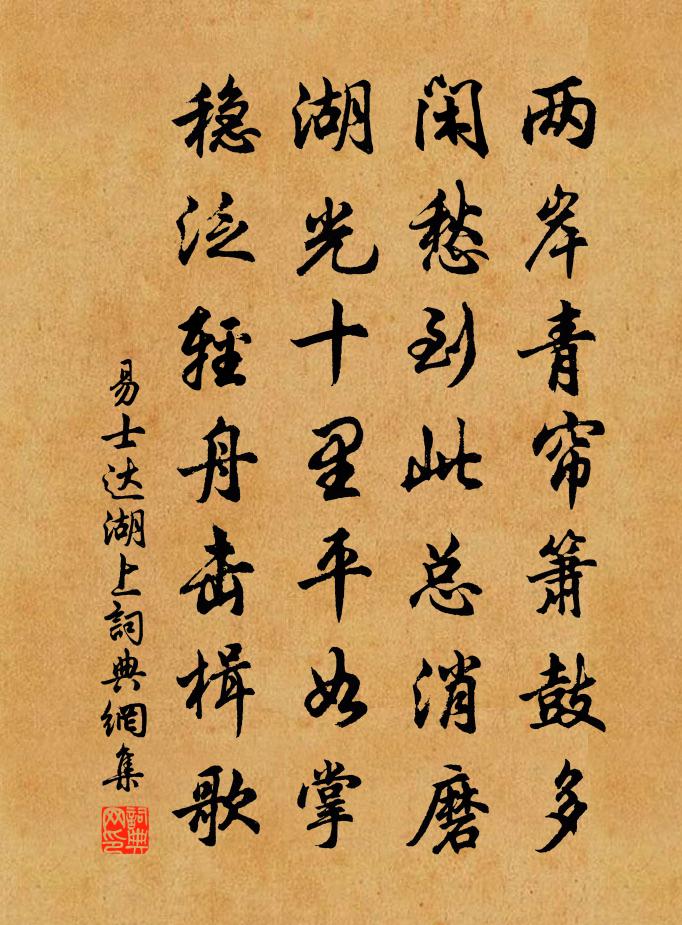 两岸青帘箫鼓多
闲愁到此总消磨
湖光十里平如掌
稳泛轻舟击楫歌
易士达湖上詞典網集
詞典
网印